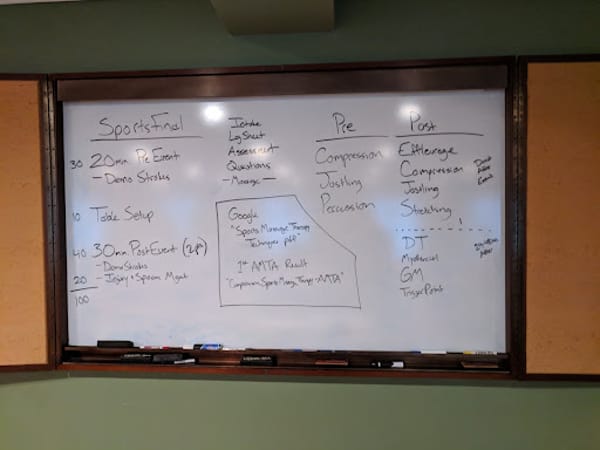 Sports Final
30 20min Pre Event
- Demo Strokes
10 Table Setup
40 30min Post Event
- Demo Strokes
20 - Injury + Spasm Mgmt
100
Intake
Log Sheet
Assessment
Questions
- Massage -
Google
"Sports Massage Therapy
Techniques pdf"
1st AMTA Result
"Compression, Sports Massage Therapy - AMTA"
Pre
Compression
Jostling
Percussion
Post
Effleurage
Compression
Jostling
Stretching
DT
Myofascial
GM
Trigger Point